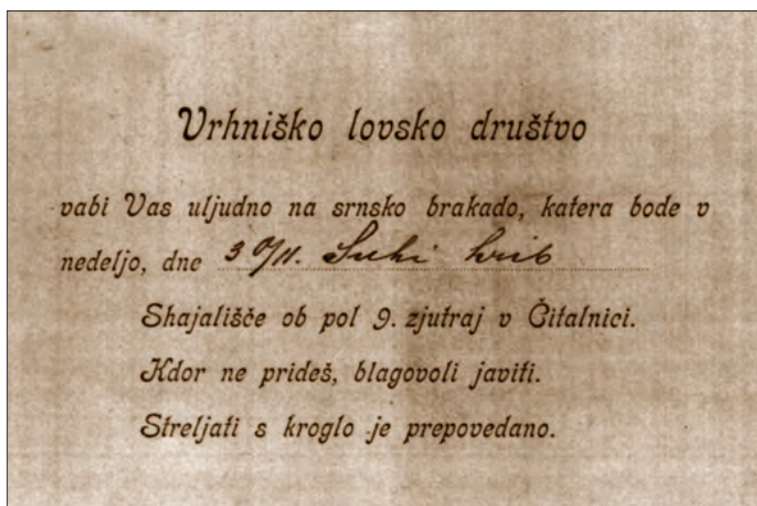 Vrhniško lovsko društvo
vabi Vas uljudno na srnsko brakado, katera bode v
nedeljo, dne 30/11. Suhi hrib
Shajališče ob pol 9. zjutraj v Čitalnici.
Kdor ne prideš, blagovoli javiti.
Streljati s kroglo je prepovedano.